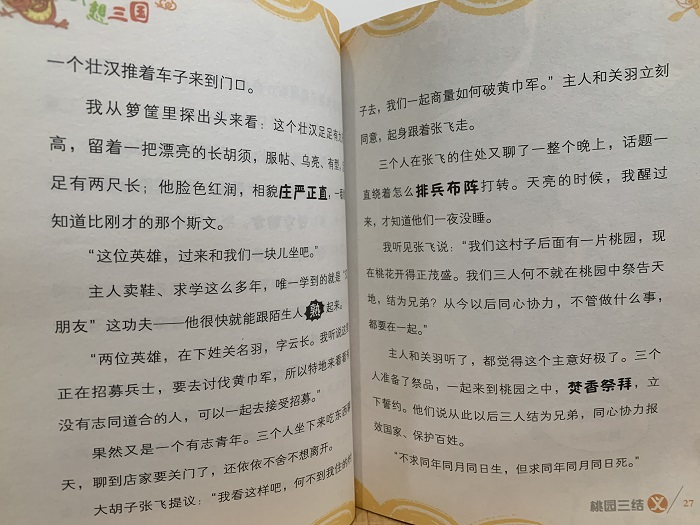 想三国
一个壮汉推着车子来到门口。
我从箩筐里探出头来看：这个壮汉足足有
高，留着一把漂亮的长胡须，服帖、乌亮、有型，
足有两尺长；他脸色红润，相貌庄严正直，一
知道比刚才的那个斯文。
“这位英雄，过来和我们一块儿坐吧。”
主人卖鞋、求学这么多年，唯一学到的就是“
朋友”这功夫——他很快就能跟陌生人熟起来。
“两位英雄，在下姓关名羽，字云长。我听说这
正在招募兵士，要去讨伐黄巾军，所以特地来看看
没有志同道合的人，可以一起去接受招募。”
果然又是一个有志青年。三个人坐下来吃东
天，聊到店家要关门了，还依依不舍不想离开。
大胡子张飞提议：“我看这样吧，何不到我住的
子去，我们一起商量如何破黄巾军。”主人和关羽立刻
同意，起身跟着张飞走。
三个人在张飞的住处又聊了一整个晚上，话题一
直绕着怎么排兵布阵打转。天亮的时候，我醒过
来，才知道他们一夜没睡。
我听见张飞说：“我们这村子后面有一片桃园，现
在桃花开得正茂盛。我们三人何不就在桃园中祭告天
地，结为兄弟？从今以后同心协力，不管做什么事，
都要在一起。”
主人和关羽听了，都觉得这个主意好极了。三个
人准备了祭品，一起来到桃园之中，焚香祭拜，立
下誓约。他们说从此以后三人结为兄弟，同心协力报
效国家、保护百姓。
“不求同年同月同日生，但求同年同月同日死。”
桃园三结义 27